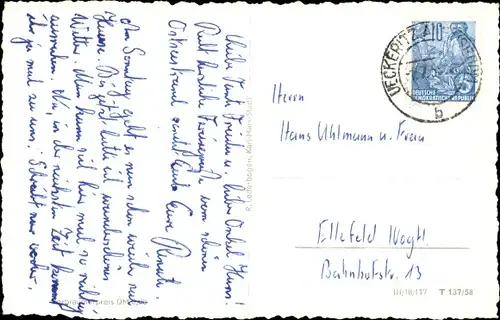 Liebe Tante Frieda u. lieber Onkel Hans!
Recht herzliche Feriengrüße vom schönen
Ostseestrand sendet Euch Eure Renate.
Am Sonntag geht es nun schon wieder nach
Hause. Bis jetzt hatte ich wunderschönes
Wetter. Man kann sich hier mal so richtig
ausruhen. Na, in der nächsten Zeit kommt
ihr ja mal zu uns. Schreibt mal vorher.
R. Lederbogen, Karl-Marx-Stadt
UECKERITZ
10
DEUTSCHE
DEMOKRATISCHE REPUBLIK
5
b
Herrn
Hans Uhlmann u. Frau
Ellefeld Vogtl.
Bahnhofstr. 13
III/18/117 T 137/58